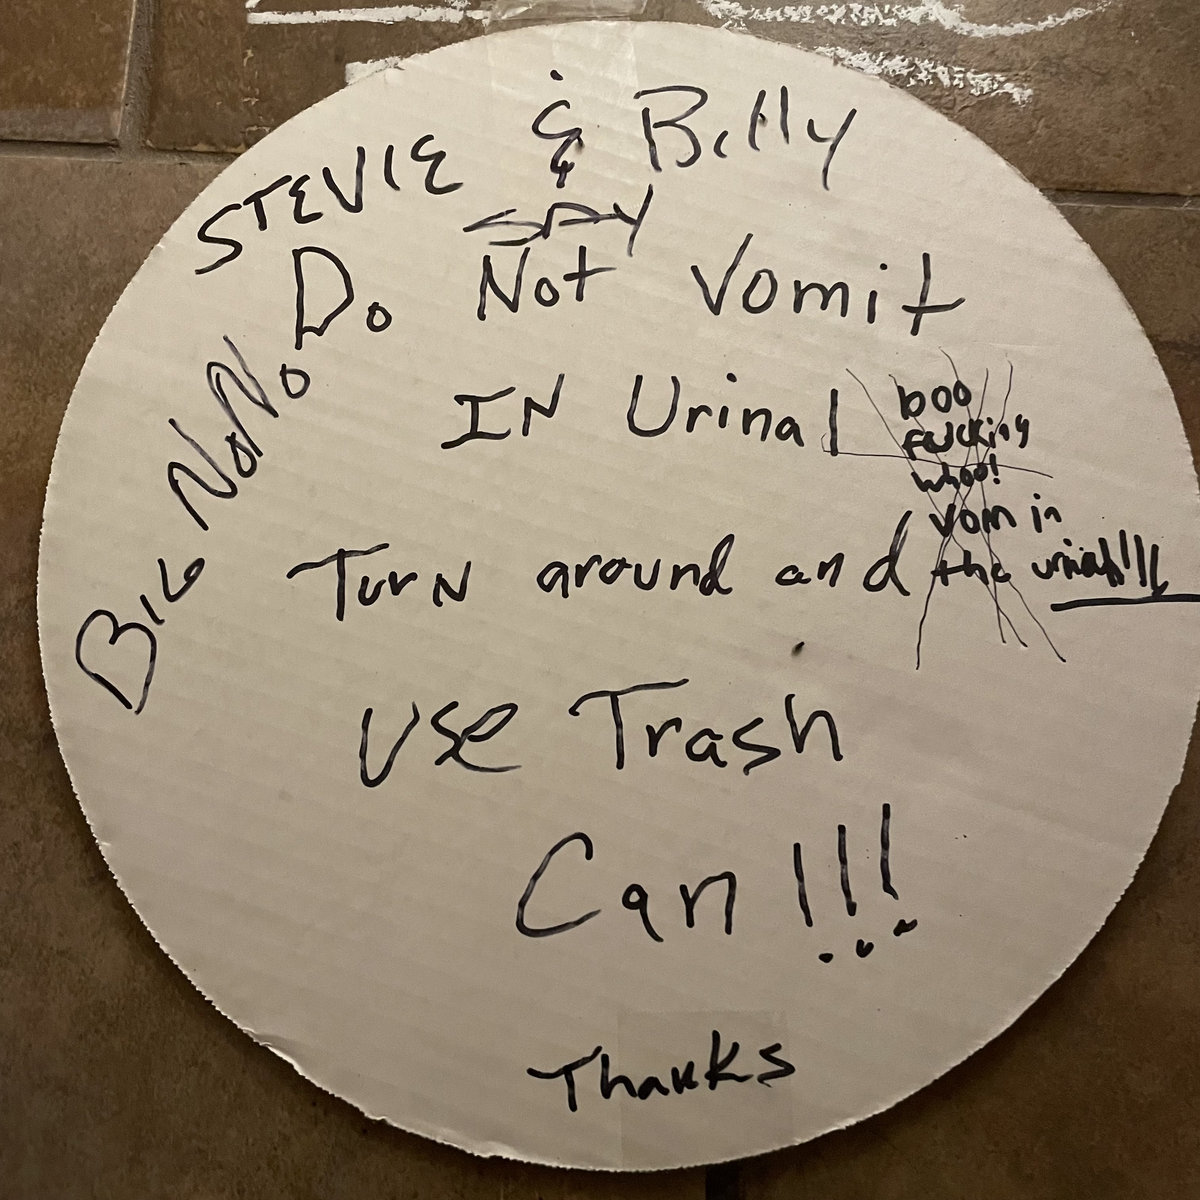 STEVIE & Billy
SAY
Do Not Vomit
IN Urinal
boo
fucking
whoo!
vom in
the urinal!!!!
Turn around and
Use Trash
Can!!!
Thanks
BIG NoNo